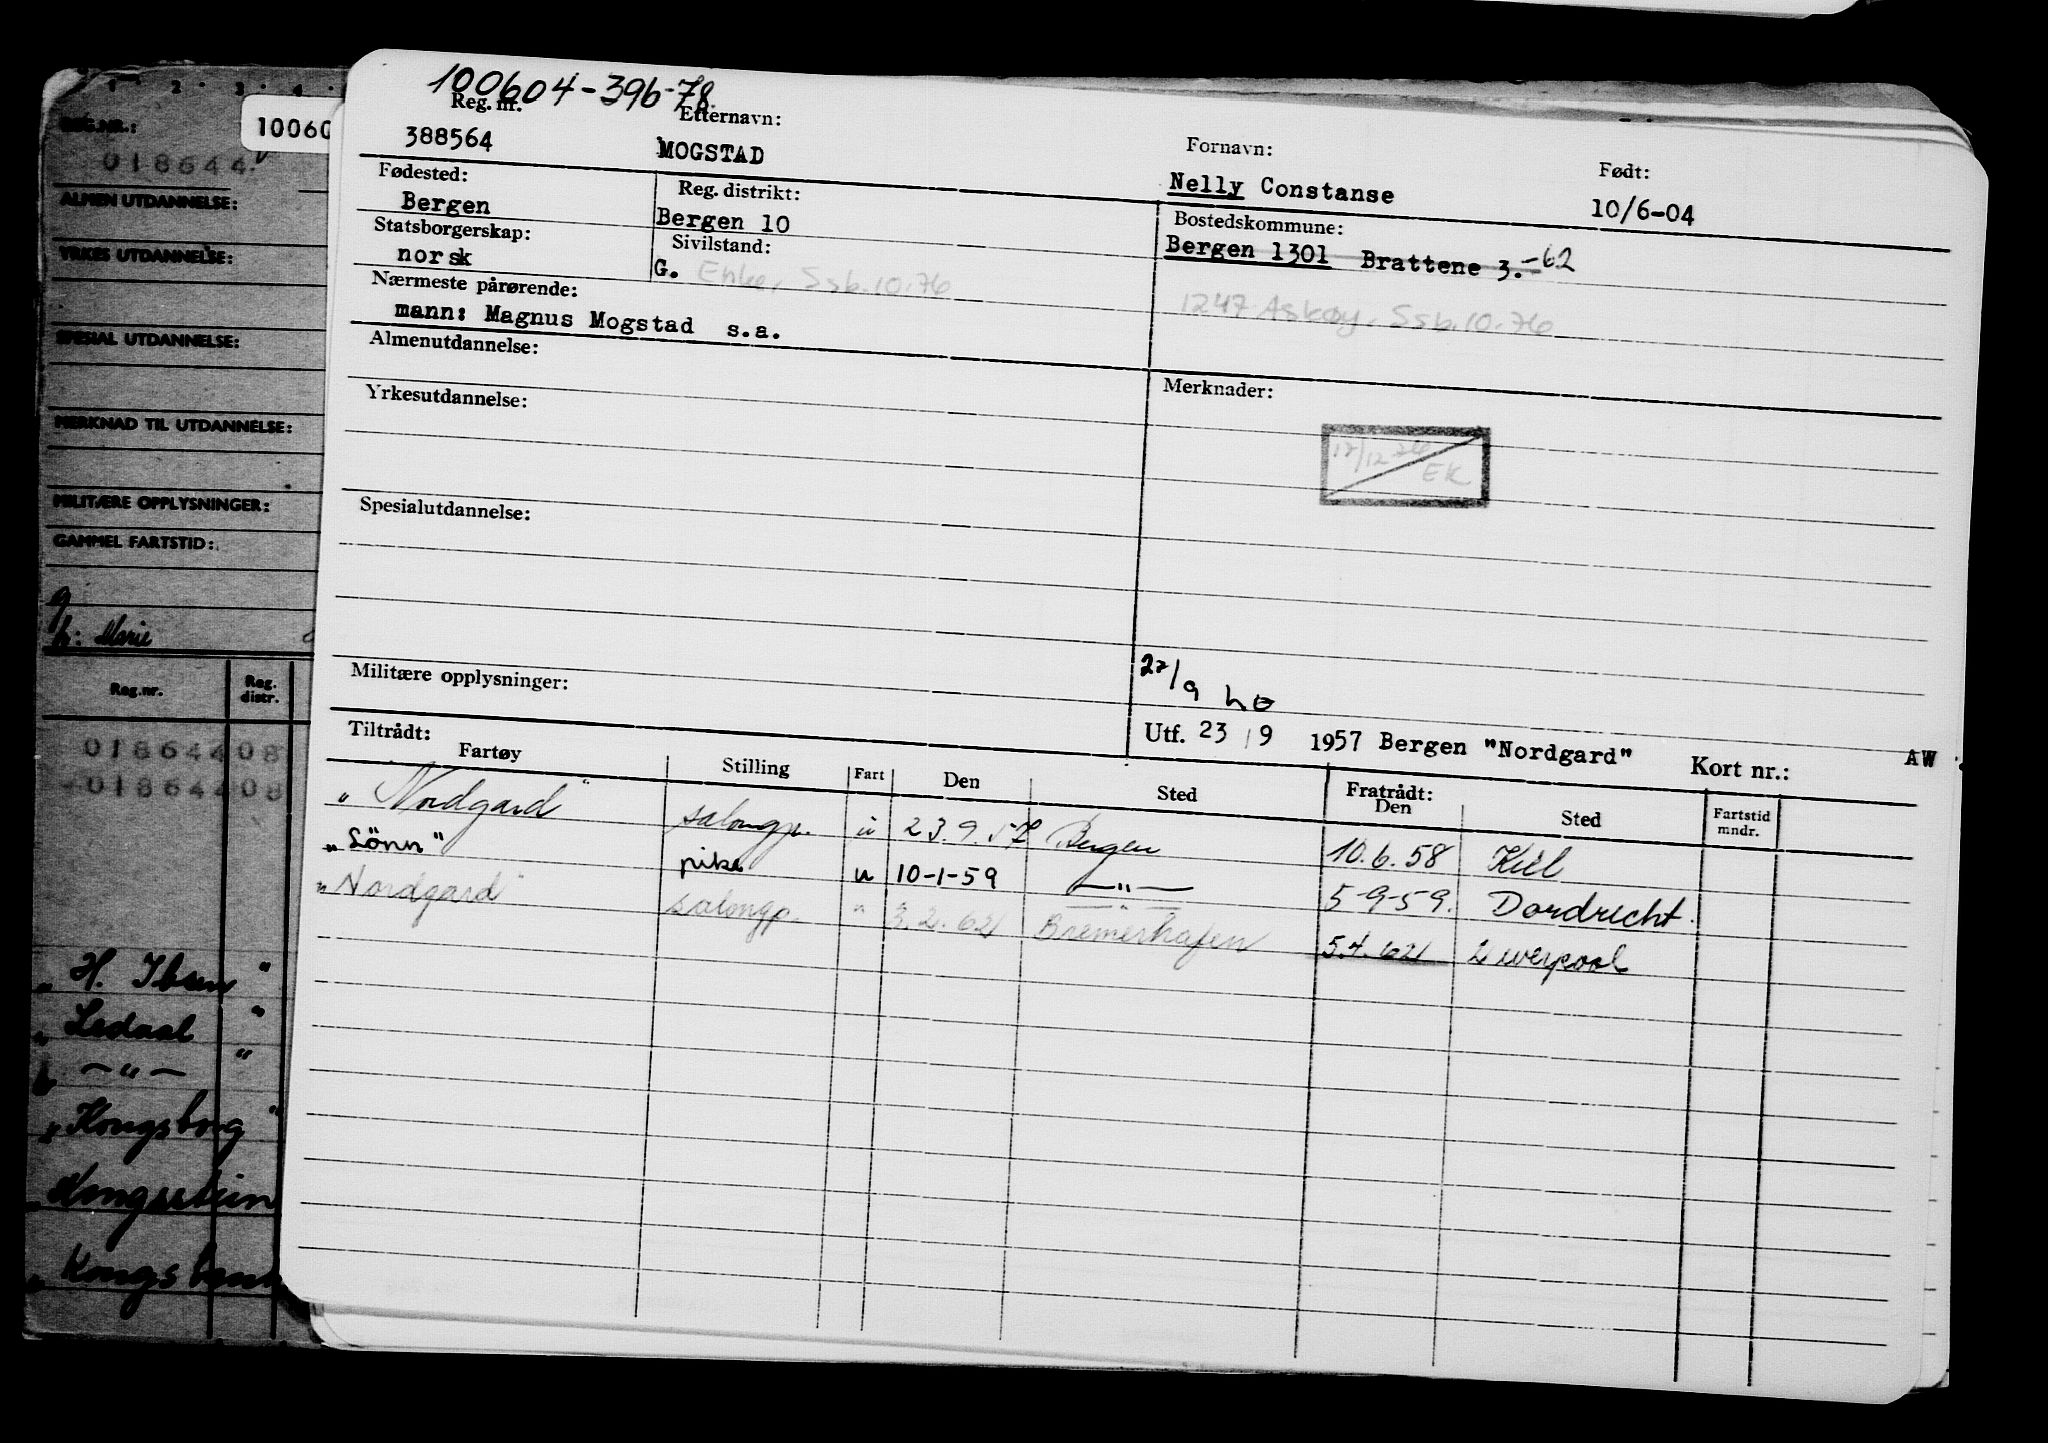 1 2 3 4
REG.NR.:
10060
018644
ALMEN UTDANNELSE:
YRKES UTDANNELSE:
SPESIAL UTDANNELSE:
MERKNAD TIL UTDANNELSE:
MILITÆRE OPPLYSNINGER:
GAMMEL FARTSTID:
g
h: Marie
Reg.nr. Reg. distr.
01864408
01864408
"H. Ibsen"
"Ledaal"
" — " — "
"Kongsborg"
"Kongsstein
100604-396-78
Reg. nr. Etternavn: Fornavn: Født:
388564 MOGSTAD Nelly Constanse 10/6-04
Fødested: Reg. distrikt: Bostedskommune:
Bergen Bergen 10 Bergen 1301 Brattene 3. -62
Statsborgerskap: Sivilstand:
norsk G. Enke, Ssb.10.76 1247 Askøy, Ssb.10.76
Nærmeste pårørende:
mann: Magnus Mogstad s.a.
Almenutdannelse: Merknader:
Yrkesutdannelse:
EK
Spesialutdannelse:
27/9
Militære opplysninger:
Utf. 23/9 1957 Bergen "Nordgard" Kort nr.: AW
Tiltrådt: Fratrådt:
Fartøy Stilling Fart Den Sted Den Sted Fartstid mndr.
"Nordgard" salongp. u 23.9.57 Bergen 10.6.58 Kiel
"Lönn" pike u 10-1-59 — " — 5-9-59. Dordrecht.
"Nordgard" salongp. " 3.2.62 Bremerhafen 5.4.62 Liverpool